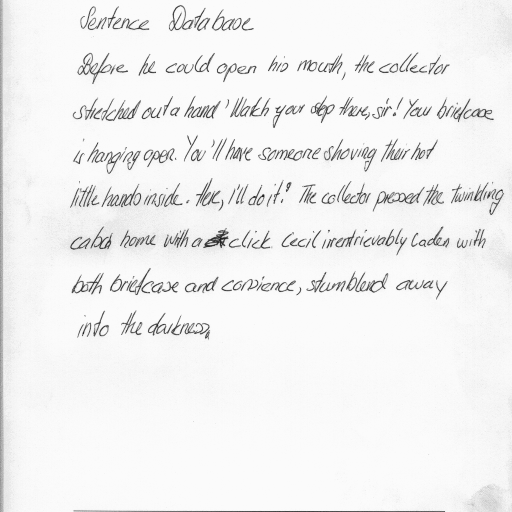 Sentence Database
Before he could open his mouth, the collector
stretched out a hand 'Watch your step there, sir! Your briefcase
is hanging open. You'll have someone shoving their hot
little hands inside. Here, I'll do it!' The collector pressed the twinkling
catch home with a click. Cecil irretrievably laden with
both briefcase and consience, stumblend away
into the darkness,